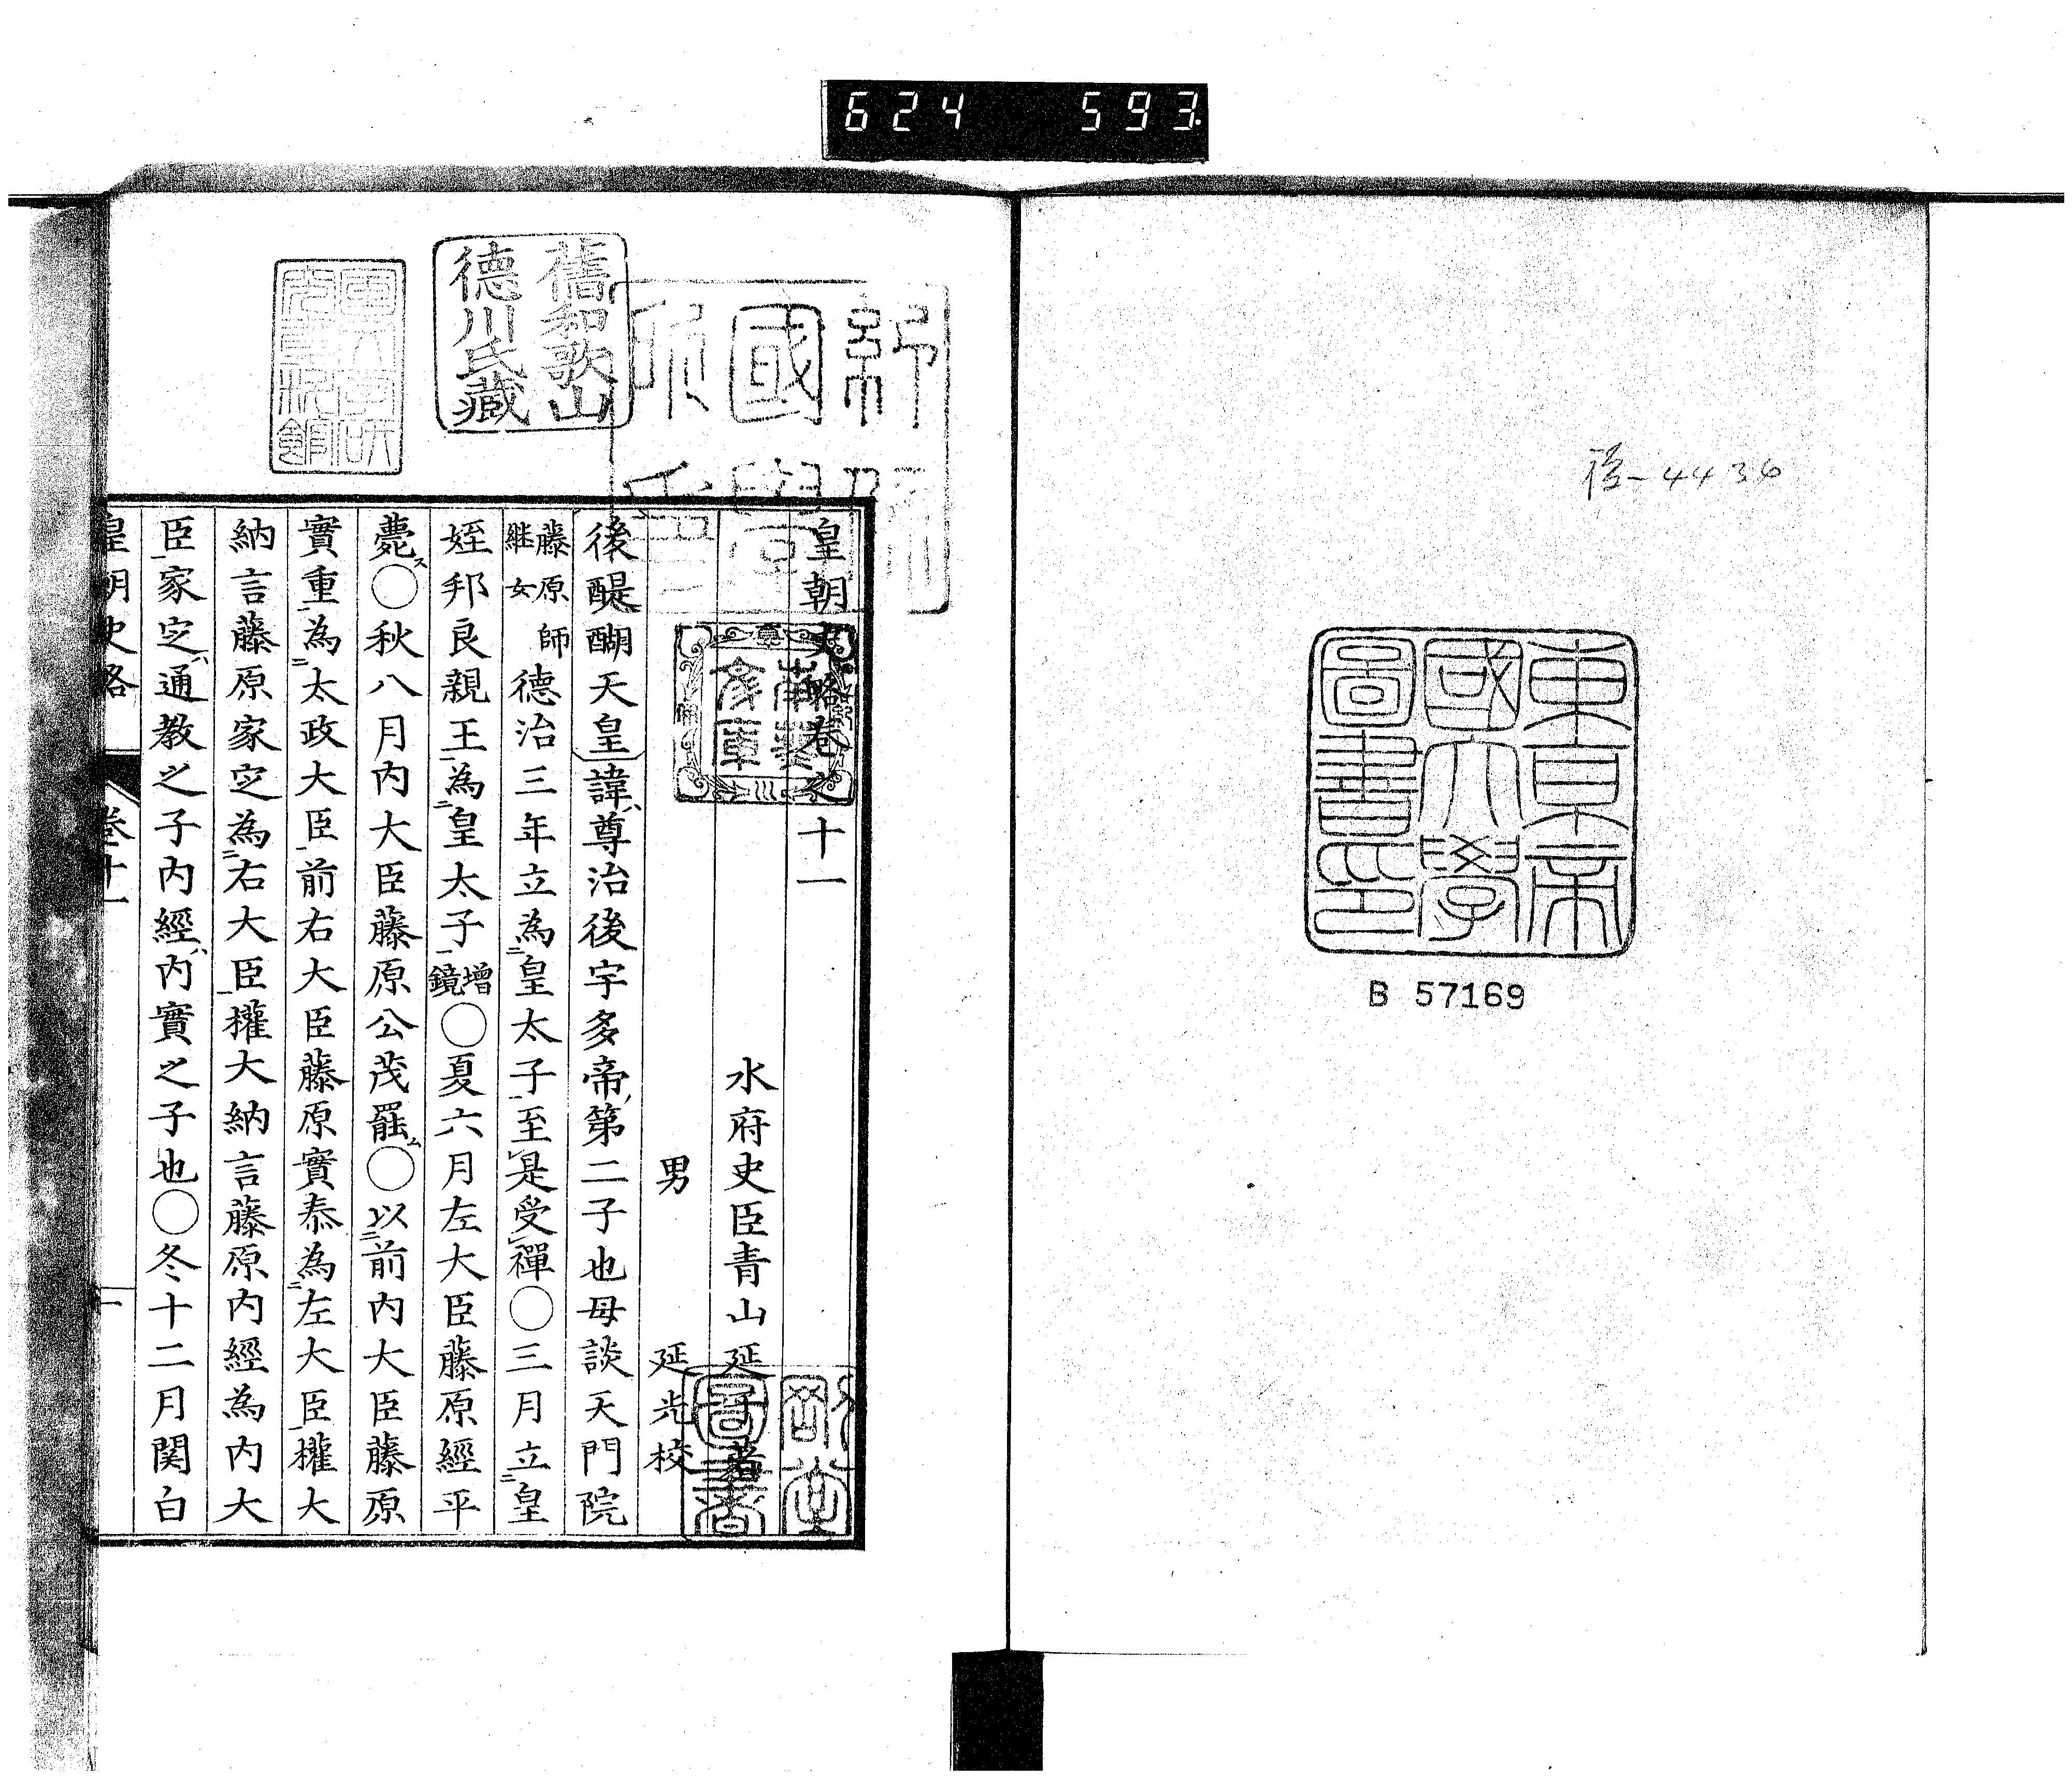 624 593
径-4436
東京帝
國大學
圖書印
B 57169
舊和歌山
德川氏藏
皇朝史略卷之十一
水府史臣青山延于著
男 延光校
後醍醐天皇諱ハ尊治後宇多帝ノ第二子也母談天門院
藤原師
継女
德治三年立為二皇太子一至是受禪〇三月立二皇
姪邦良親王一為二皇太子一
增
鏡
〇夏六月左大臣藤原經平
薨ス〇秋八月内大臣藤原公茂罷ム〇以二前内大臣藤原
實重一為二太政大臣一前右大臣藤原實泰為二左大臣一權大
納言藤原家定為二右大臣一權大納言藤原内經為内大
臣一家定ハ通教之子内經ハ内實之子也〇冬十二月関白
皇朝史略
卷十一
一